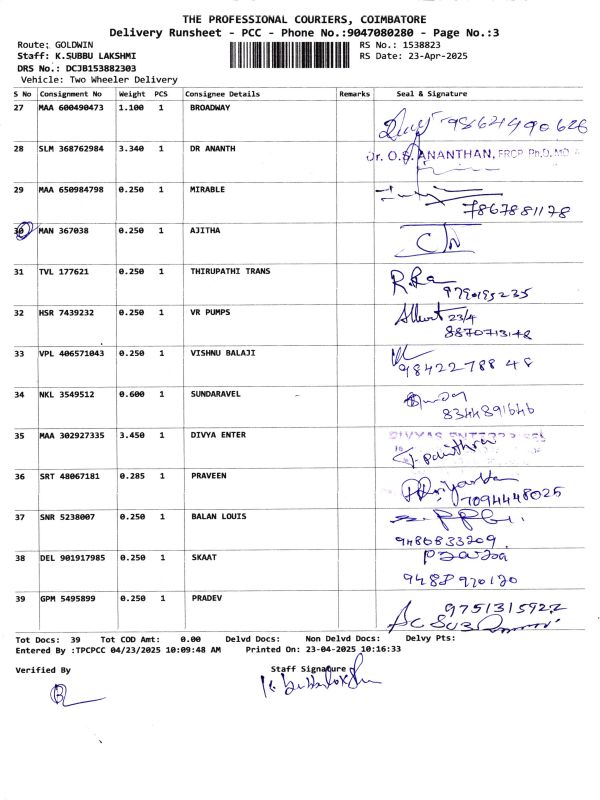 THE PROFESSIONAL COURIERS, COIMBATORE
Delivery Runsheet - PCC - Phone No.:9047080280 - Page No.:3
Route: GOLDWIN RS No.: 1538823
Staff: K.SUBBU LAKSHMI RS Date: 23-Apr-2025
DRS No.: DCJB153882303
Vehicle: Two Wheeler Delivery
S No Consignment No Weight PCS Consignee Details Remarks Seal & Signature
27 MAA 600490473 1.100 1 BROADWAY
28 SLM 368762984 3.340 1 DR ANANTH Dr. O.S. ANANTHAN, FRCP. Ph.D.
29 MAA 650984798 0.250 1 MIRABLE 7867881178
30 MAN 367038 0.250 1 AJITHA
31 TVL 177621 0.250 1 THIRUPATHI TRANS
32 HSR 7439232 0.250 1 VR PUMPS 23/4
8870713142
33 VPL 406571043 0.250 1 VISHNU BALAJI 9842278848
34 NKL 3549512 0.600 1 SUNDARAVEL
8344891646
35 MAA 302927335 3.450 1 DIVYA ENTER DIVYAS ENTERPRISES
36 SRT 48067181 0.285 1 PRAVEEN
7094448025
37 SNR 5238007 0.250 1 BALAN LOUIS
9480833209
38 DEL 901917985 0.250 1 SKAAT
9488970120
39 GPM 5495899 0.250 1 PRADEV 9751315922
Tot Docs: 39 Tot COD Amt: 0.00 Delvd Docs: Non Delvd Docs: Delvy Pts:
Entered By :TPCPCC 04/23/2025 10:09:48 AM Printed On: 23-04-2025 10:16:33
Verified By Staff Signature